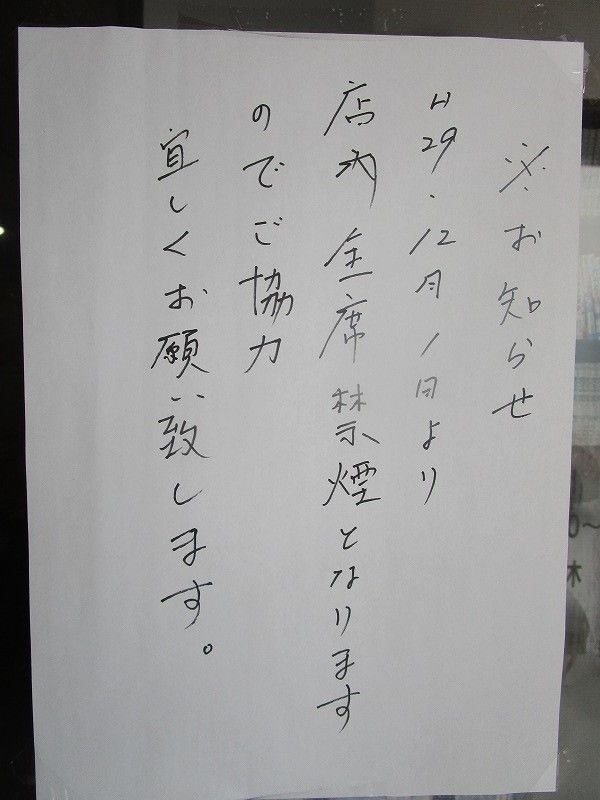 ※お知らせ
H29.12月1日より
店内全席禁煙となります
のでご協力
宜しくお願い致します。